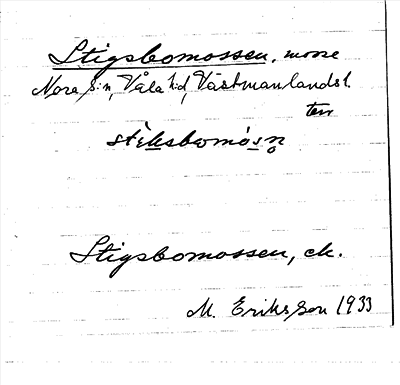 Stigsbomossen, mosse
Nora s:n, Våla hd, Västmanlands l.
terr
Stigsbomossen, ek.
M. Eriksson 1933